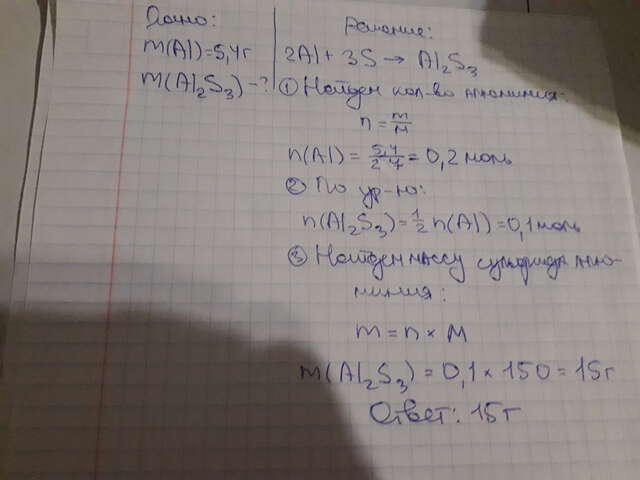 Дано:
m(Al)=5,4г
m(Al₂S₃)-?
Решение:
2Al + 3S → Al₂S₃
① Найдем кол-во алюминия:
n = m/M
n(Al) = 5,4/27 = 0,2 моль
② По ур-ю:
n(Al₂S₃) = 1/2 n(Al) = 0,1 моль
③ Найдем массу сульфида алю-
миния:
m = n × M
m(Al₂S₃) = 0,1 × 150 = 15г
Ответ: 15г